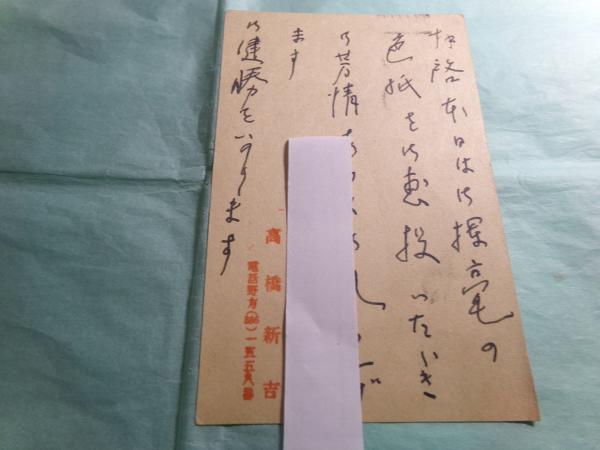 拝啓 本日は御揮毫の
色紙を御恵投いただき
御芳情あ
ます
御健勝をいのります
高橋新吉
電話野方(386)一五五八番